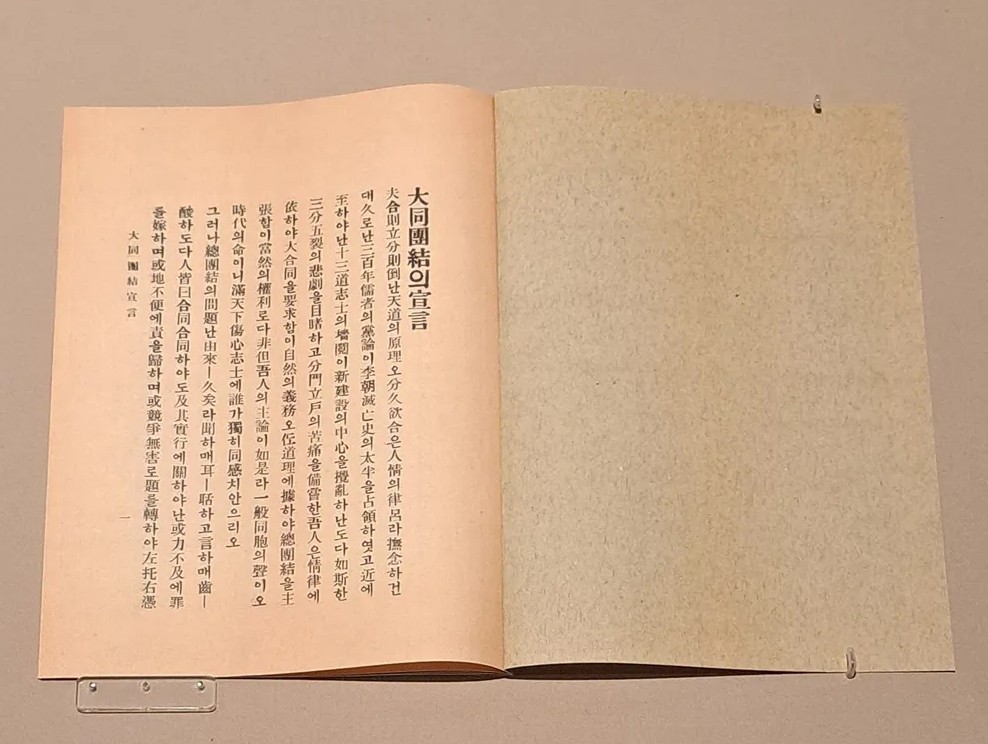 大同團結의宣言
夫合則立分則倒난天道의原理오分久欲合은人情의律呂라撫念하건
대久로난三百年儒者의黨論이李朝滅亡史의太半을占領하엿고近에
至하야난十三道志士의墻鬩이新建設의中心을攪亂하난도다如斯한
三分五裂의悲劇을目睹하고分門立戶의苦痛을備嘗한吾人은情律에
依하야大合同을要求함이自然의義務오又道理에據하야總團結을主
張함이當然의權利로다非但吾人의主論이如是라一般同胞의聲이오
時代의命이니滿天下傷心志士에誰가獨히同感치안으리오
그러나總團結의問題난由來ㅣ久矣라聞하매耳ㅣ聒하고言하매齒ㅣ
酸하도다人皆曰合同合同하야도及其實行에關하야난或力不及에罪
를嫁하며或地不便에責을歸하며或競爭無害로題를轉하야左托右憑
大同團結宣言
一